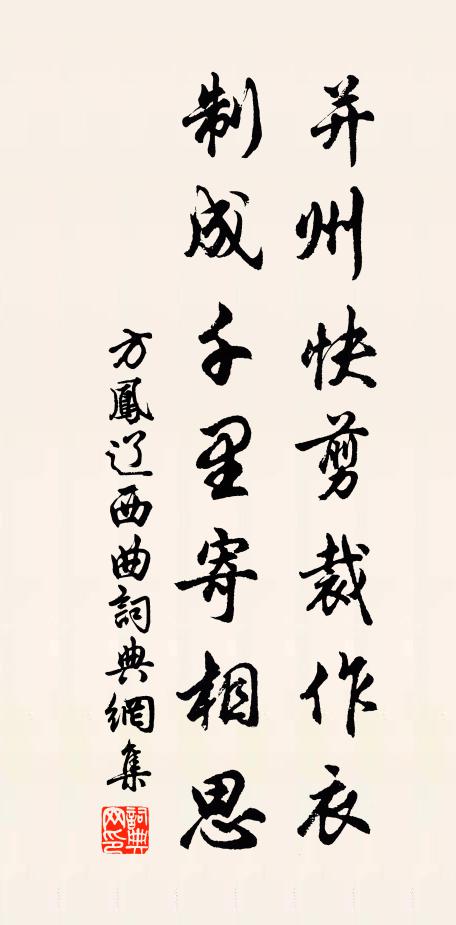 并州快剪裁作衣
制成千里寄相思
方鳳辽西曲詞典網集
詞典网印